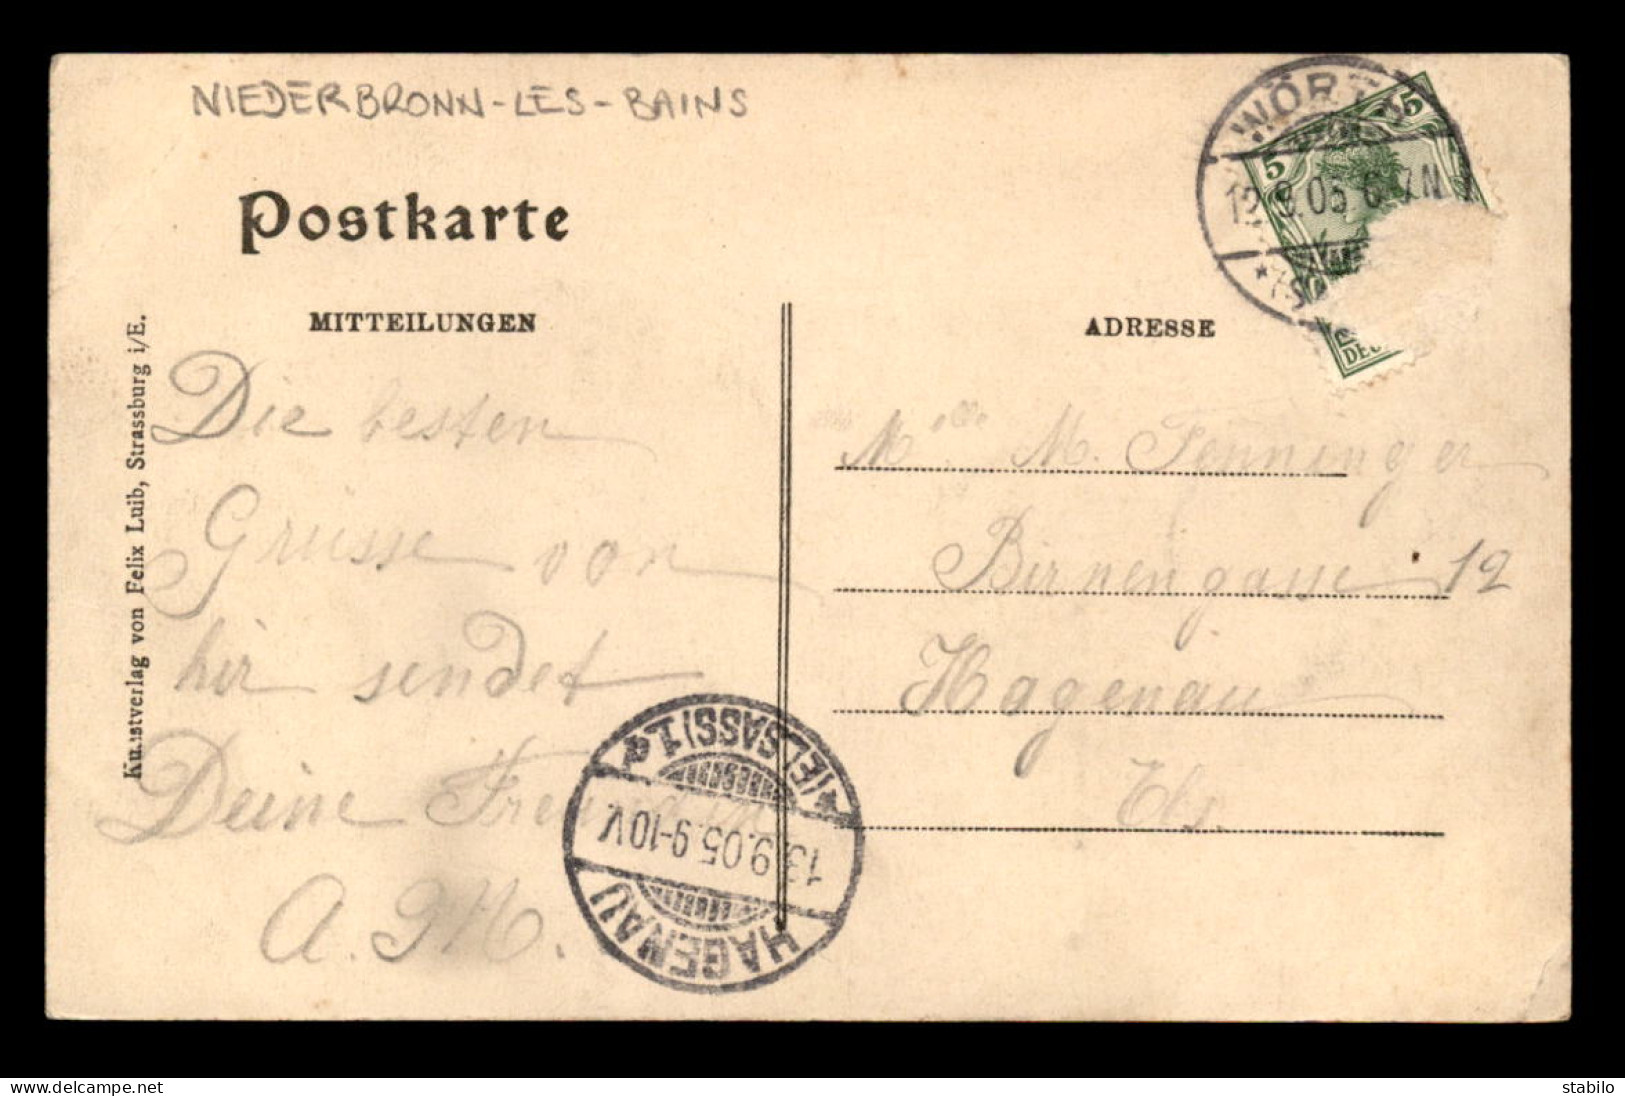 NIEDERBRONN-LES-BAINS
Postkarte
MITTEILUNGEN
Die besten
Grüsse von
hir sendet
Deine Freundin
A. M.
Kunstverlag von Felix Luib, Strassburg i/E.
ADRESSE
Melle M. Fenninger
Birnengasse 12
Hagenau
Els.
WÖRTH
12.9.05 6-7N
5 5
HAGENAU
13.9.05.9-10V
*(ELSASS)1.a
www.delcampe.net
stabilo